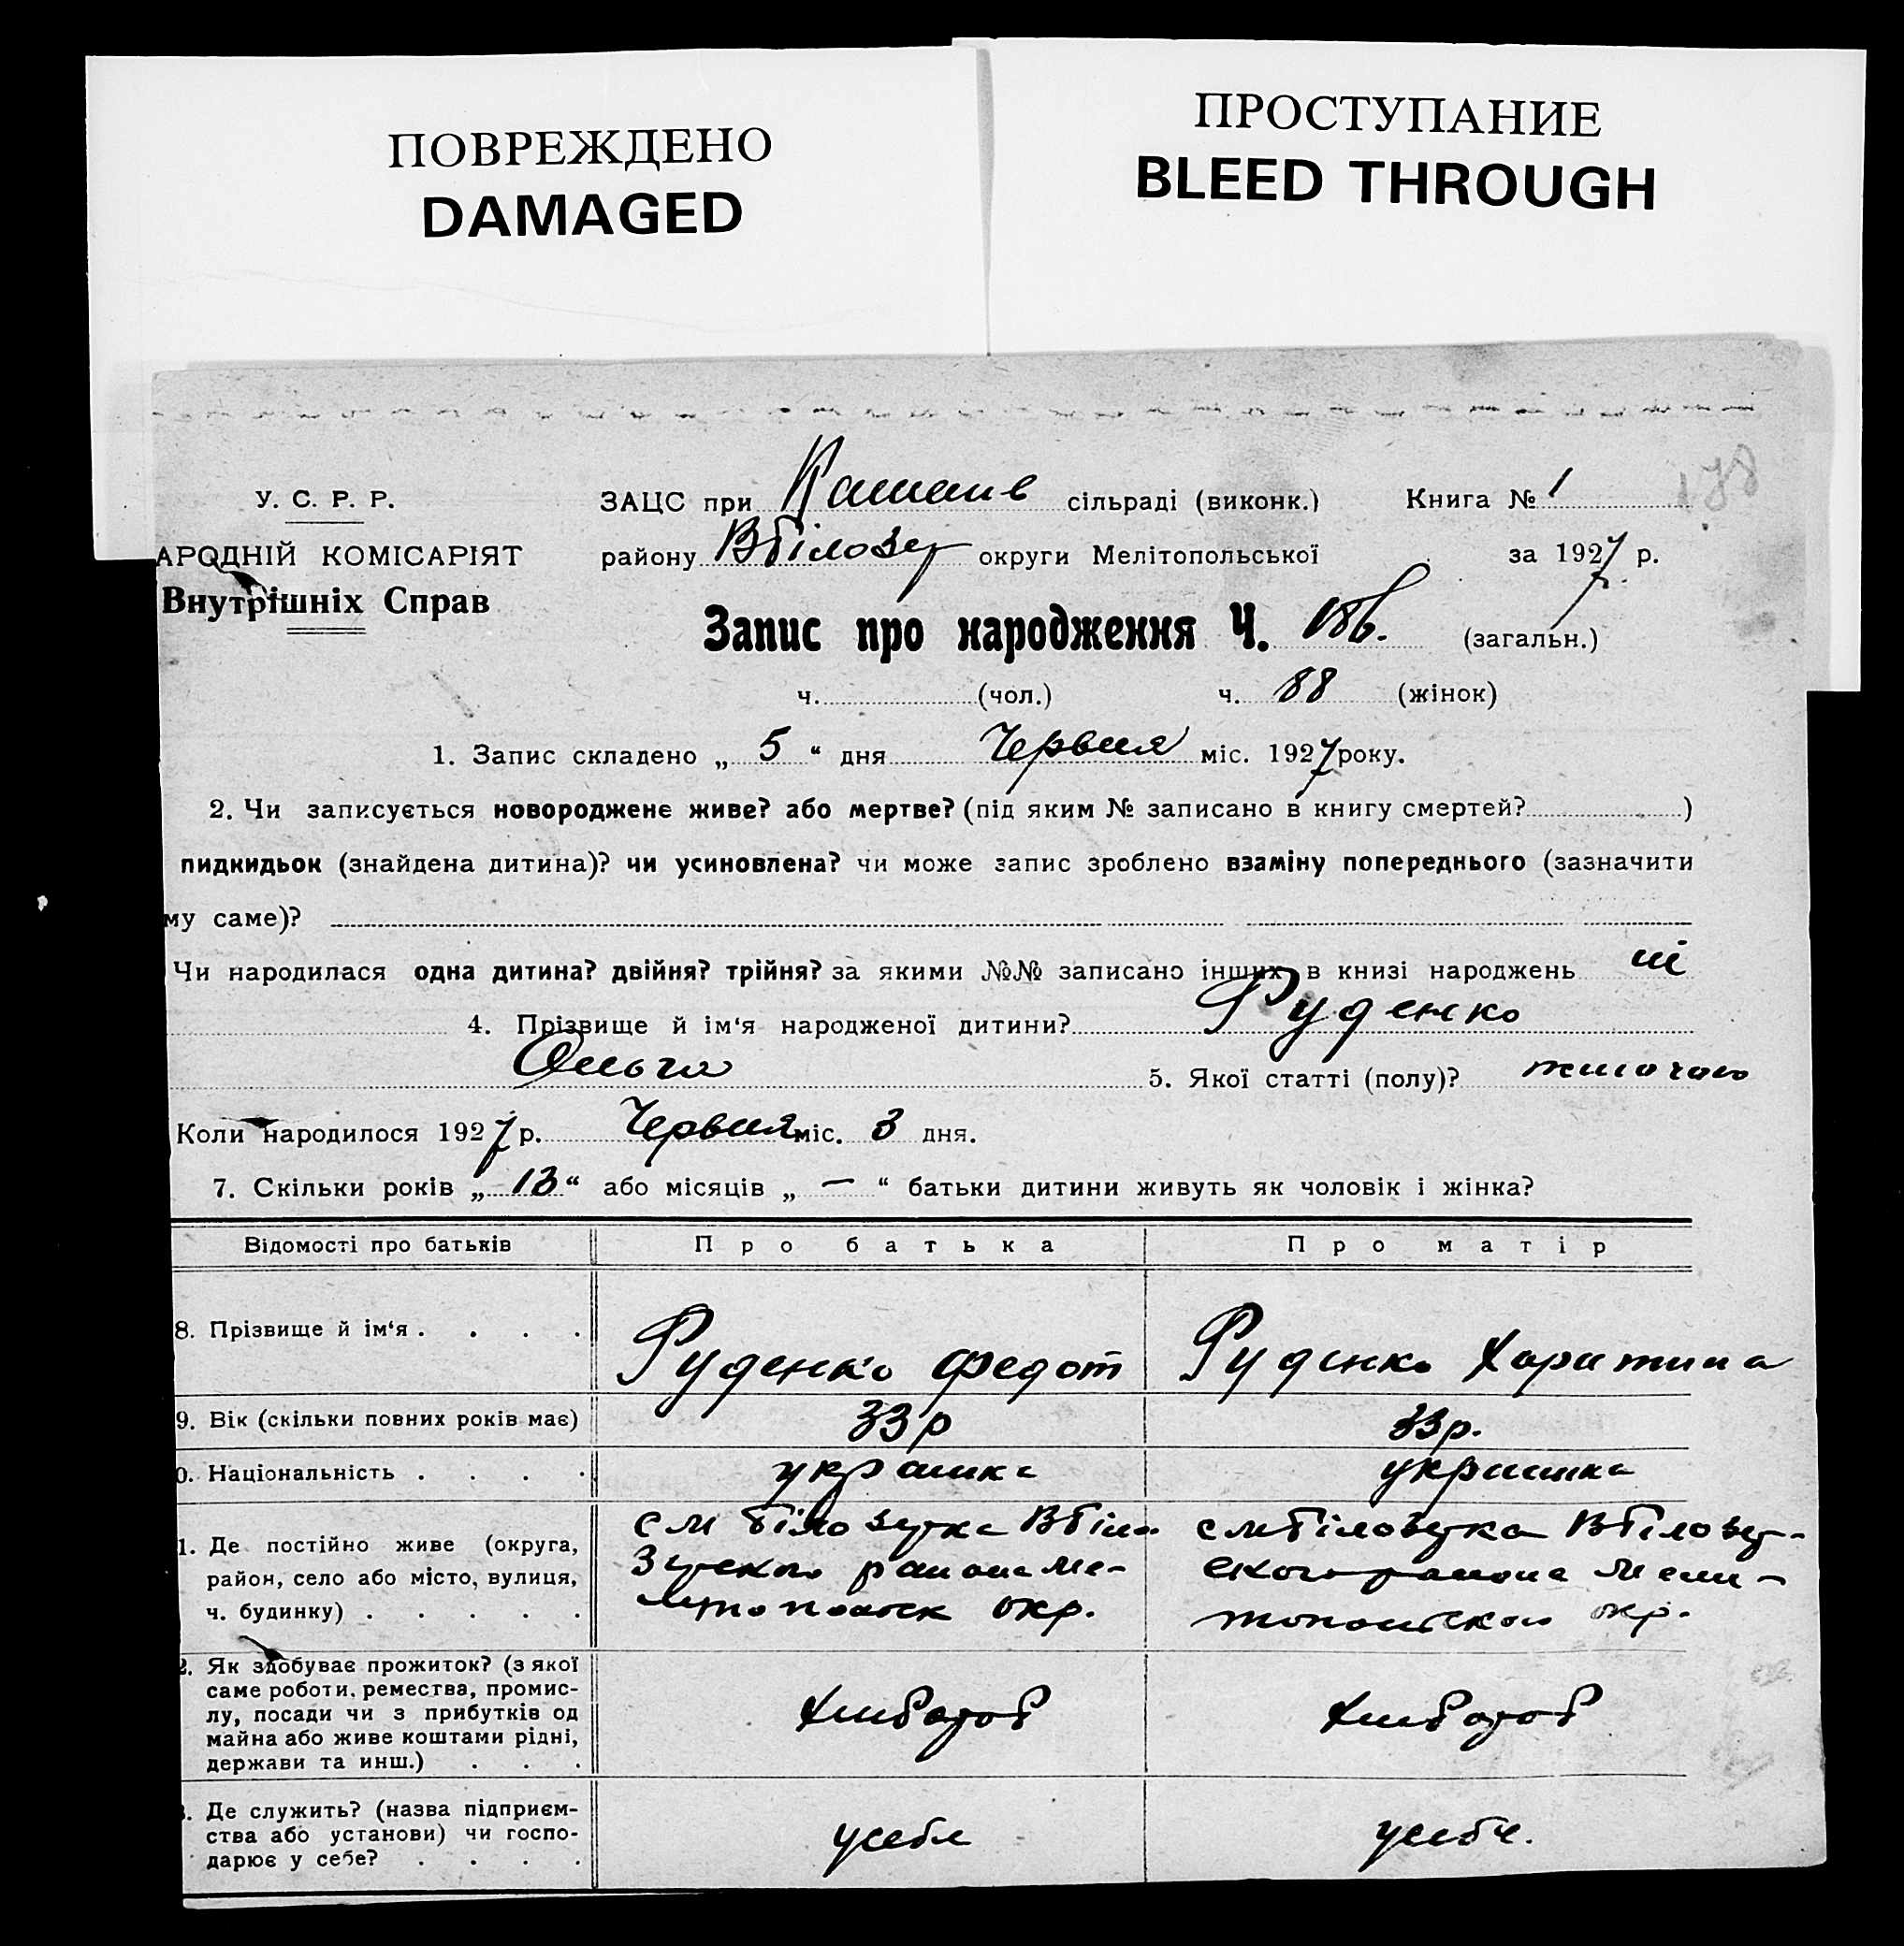 ПОВРЕЖДЕНО
DAMAGED
ПРОСТУПАНИЕ
BLEED THROUGH
178
У. С. Р. Р.
АРОДНІЙ КОМІСАРІЯТ
Внутрішніх Справ
ЗАЦС при сільраді (виконк.) Книга № 1
району ВБілозер округи Мелітопольської за 1927 р.
Запис про народження Ч. 186. (загальн.)
ч. (чол.) ч. 88 (жінок)
1. Запис складено „ 5 “ дня Червня міс. 1927 року.
2. Чи записується новороджене живе? або мертве? (під яким № записано в книгу смертей? )
пидкидьок (знайдена дитина)? чи усиновлена? чи може запис зроблено взаміну попереднього (зазначити
му саме)?
Чи народилася одна дитина? двійня? трійня? за якими №№ записано інших в книзі народжень ні
4. Прізвище й ім‘я народженої дитини? Руденко
Ольга 5. Якої статті (полу)? жиночого
Коли народилося 1927 р. Червня міс. 3 дня.
7. Скільки років „ 13 “ або місяців „ — “ батьки дитини живуть як чоловік і жінка?
Відомості про батьків Про батька Про матір
8. Прізвище й ім‘я . . . . Руденко Федот Руденко Харитина
9. Вік (скільки повних років має) 33р 33р.
0. Національність . . . . украинка
1. Де постійно живе (округа,
район, село або місто, вулиця,
ч. будинку) . . . . .
см Білозерка ВБіло
зерского района Ме-
литопольск окр.
см Білозерка ВБілозер-
ского района Мели-
топольской окр.
2. Як здобуває прожиток? (з якої
саме роботи, ремества, промис-
лу, посади чи з прибутків од
майна або живе коштами рідні,
держави та инш.) . . .
Хлибороб Хлибороб
. Де служить? (назва підприєм-
ства або установи) чи госпо-
дарює у себе? . . . .
усебе усебе.